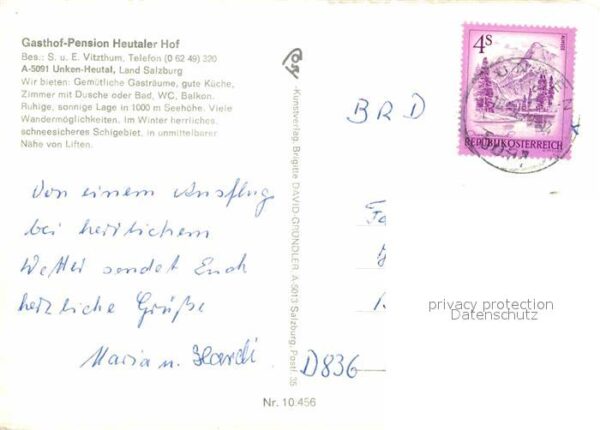 Gasthof-Pension Heutaler Hof
Bes.: S. u. E. Vitzthum, Telefon (0 62 49) 320
A-5091 Unken-Heutal, Land Salzburg
Wir bieten: Gemütliche Gasträume, gute Küche,
Zimmer mit Dusche oder Bad, WC, Balkon.
Ruhige, sonnige Lage in 1000 m Seehöhe. Viele
Wandermöglichkeiten. Im Winter herrliches,
schneesicheres Schigebiet, in unmittelbarer
Nähe von Liften.
Von einem Ausflug
bei herrlichem
Wetter sendet Euch
herzliche Grüße
Maria u. Hardi
Kunstverlag Brigitte DAVID-GRÜNDLER, A-5013 Salzburg, Postf. 35
Nr. 10.456
4S
REPUBLIK ÖSTERREICH
UNKEN
BRD
D836
privacy protection
Datenschutz